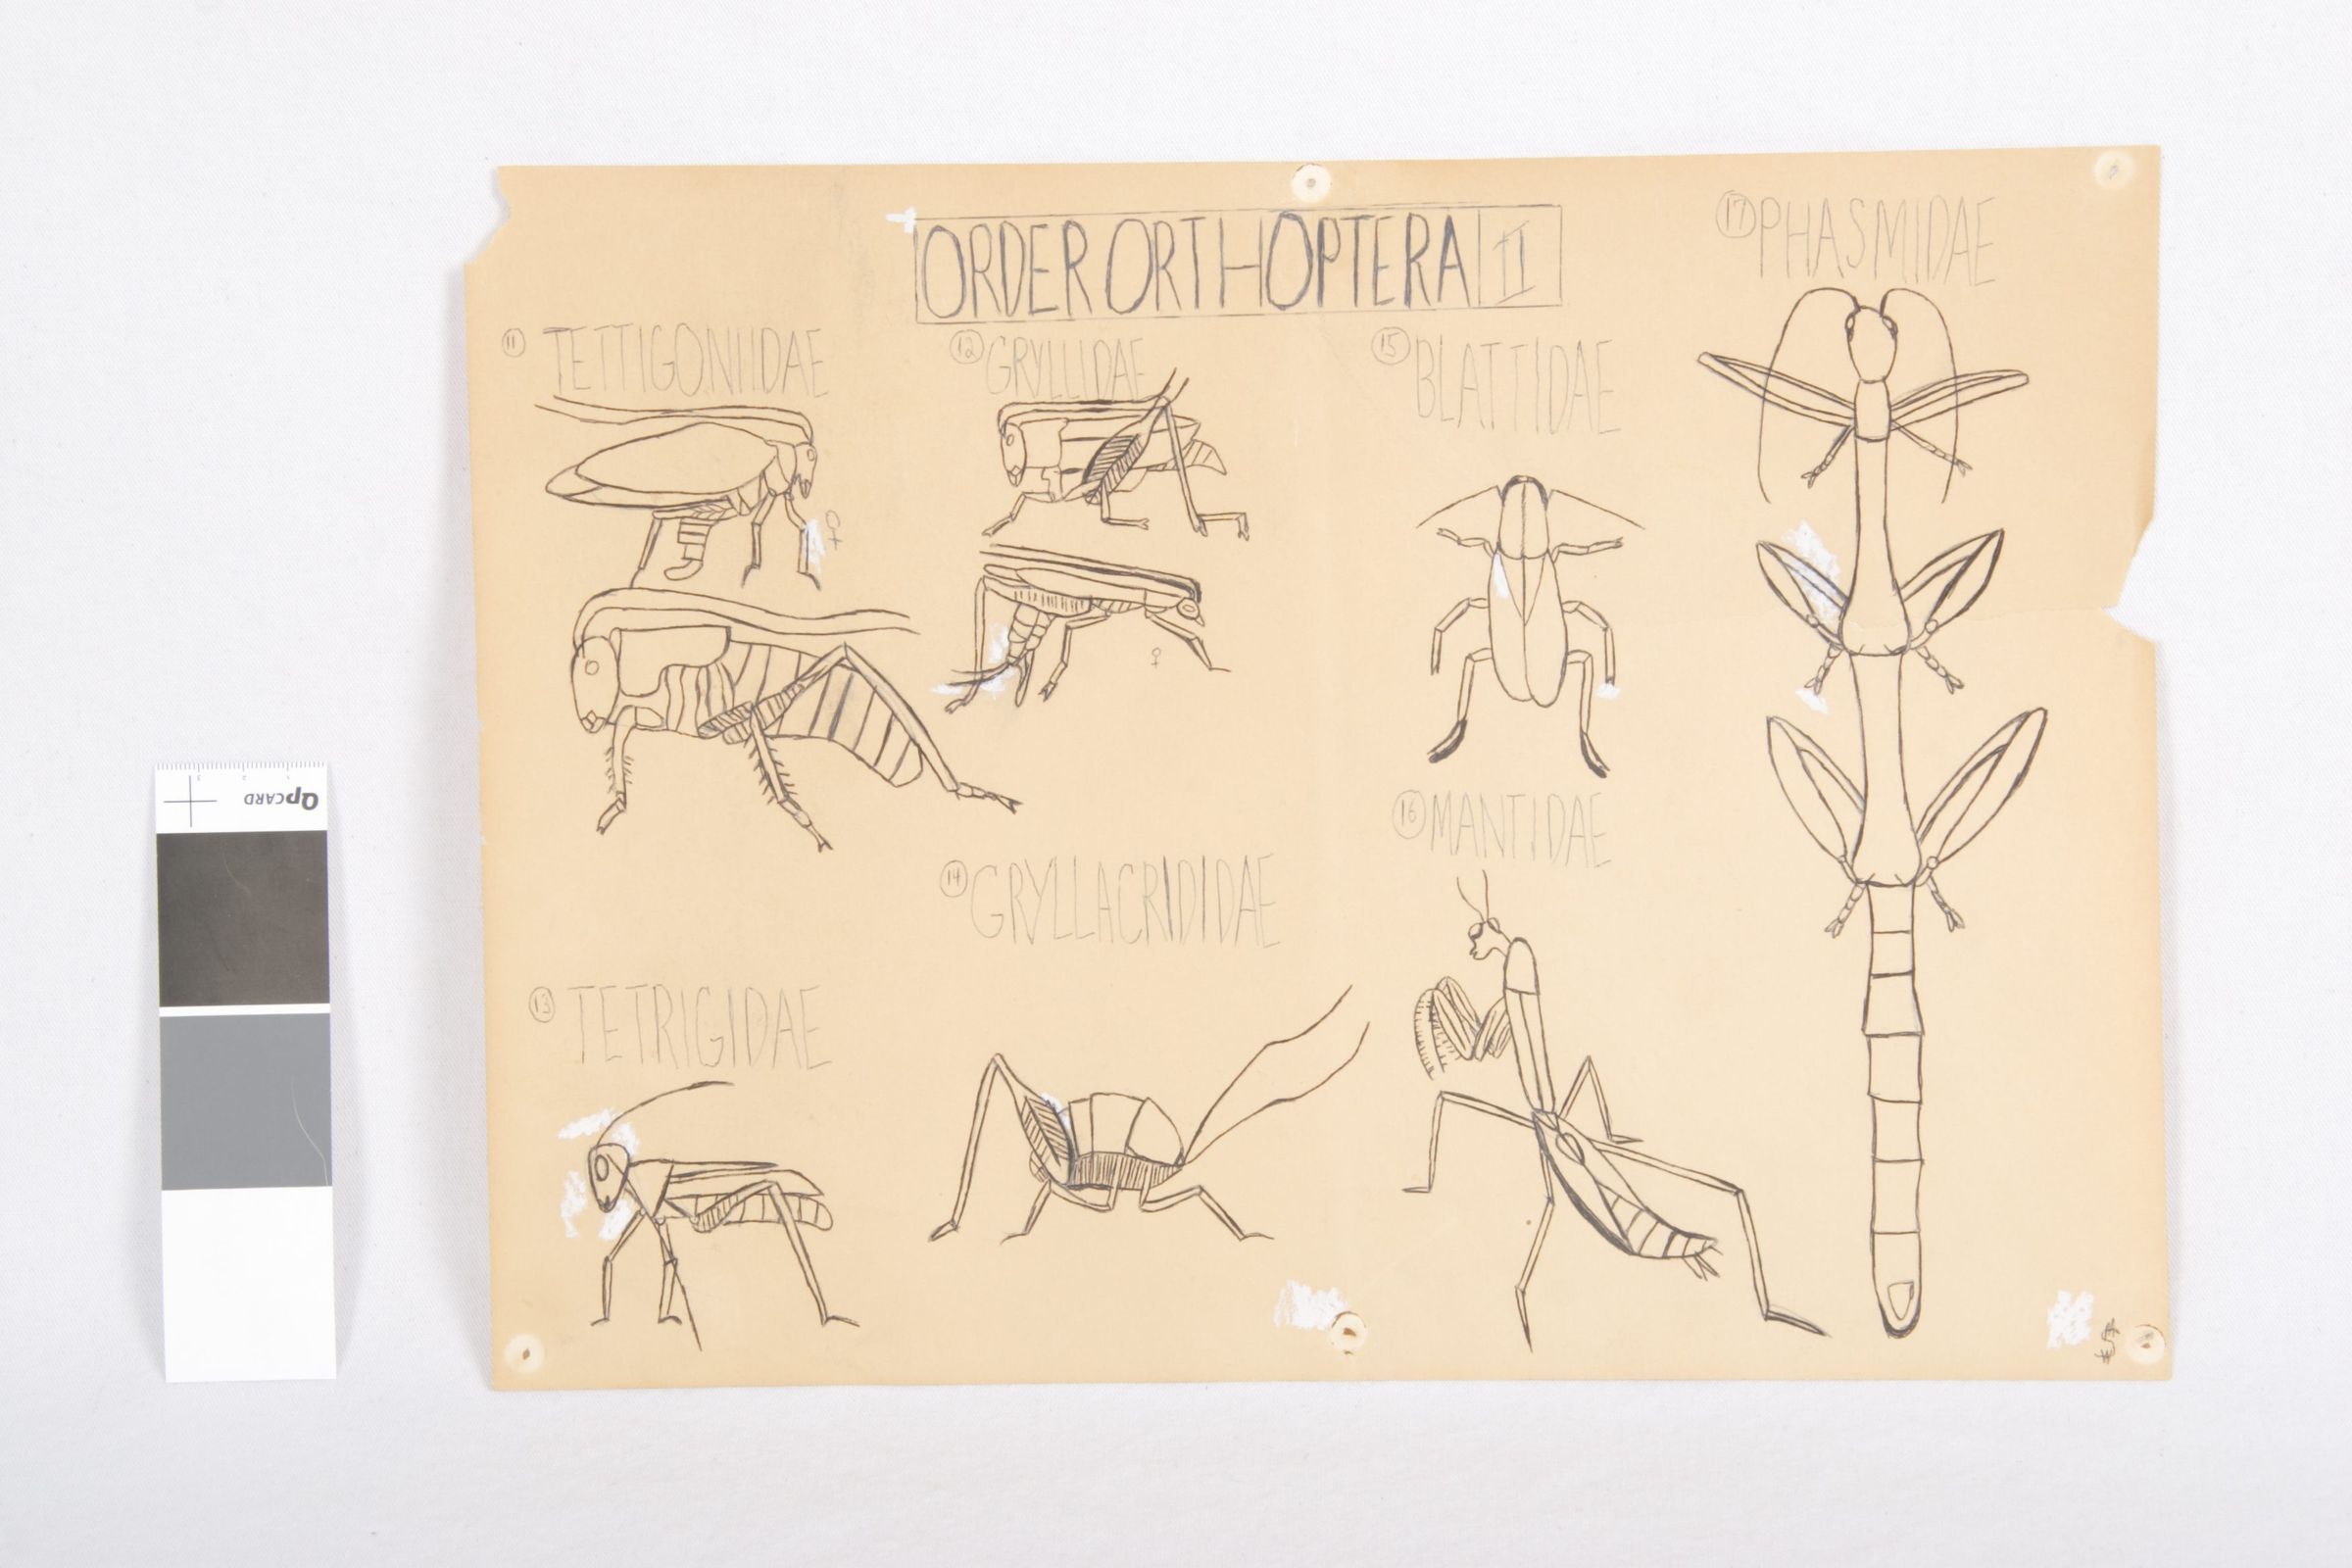 ORDER ORTHOPTERA II
11 TETTIGONIIDAE
♀
12 GRYLLIDAE
♀
13 TETRIGIDAE
14 GRYLLACRIDIDAE
15 BLATTIDAE
16 MANTIDAE
17 PHASMIDAE
QPCARD
1 2 3